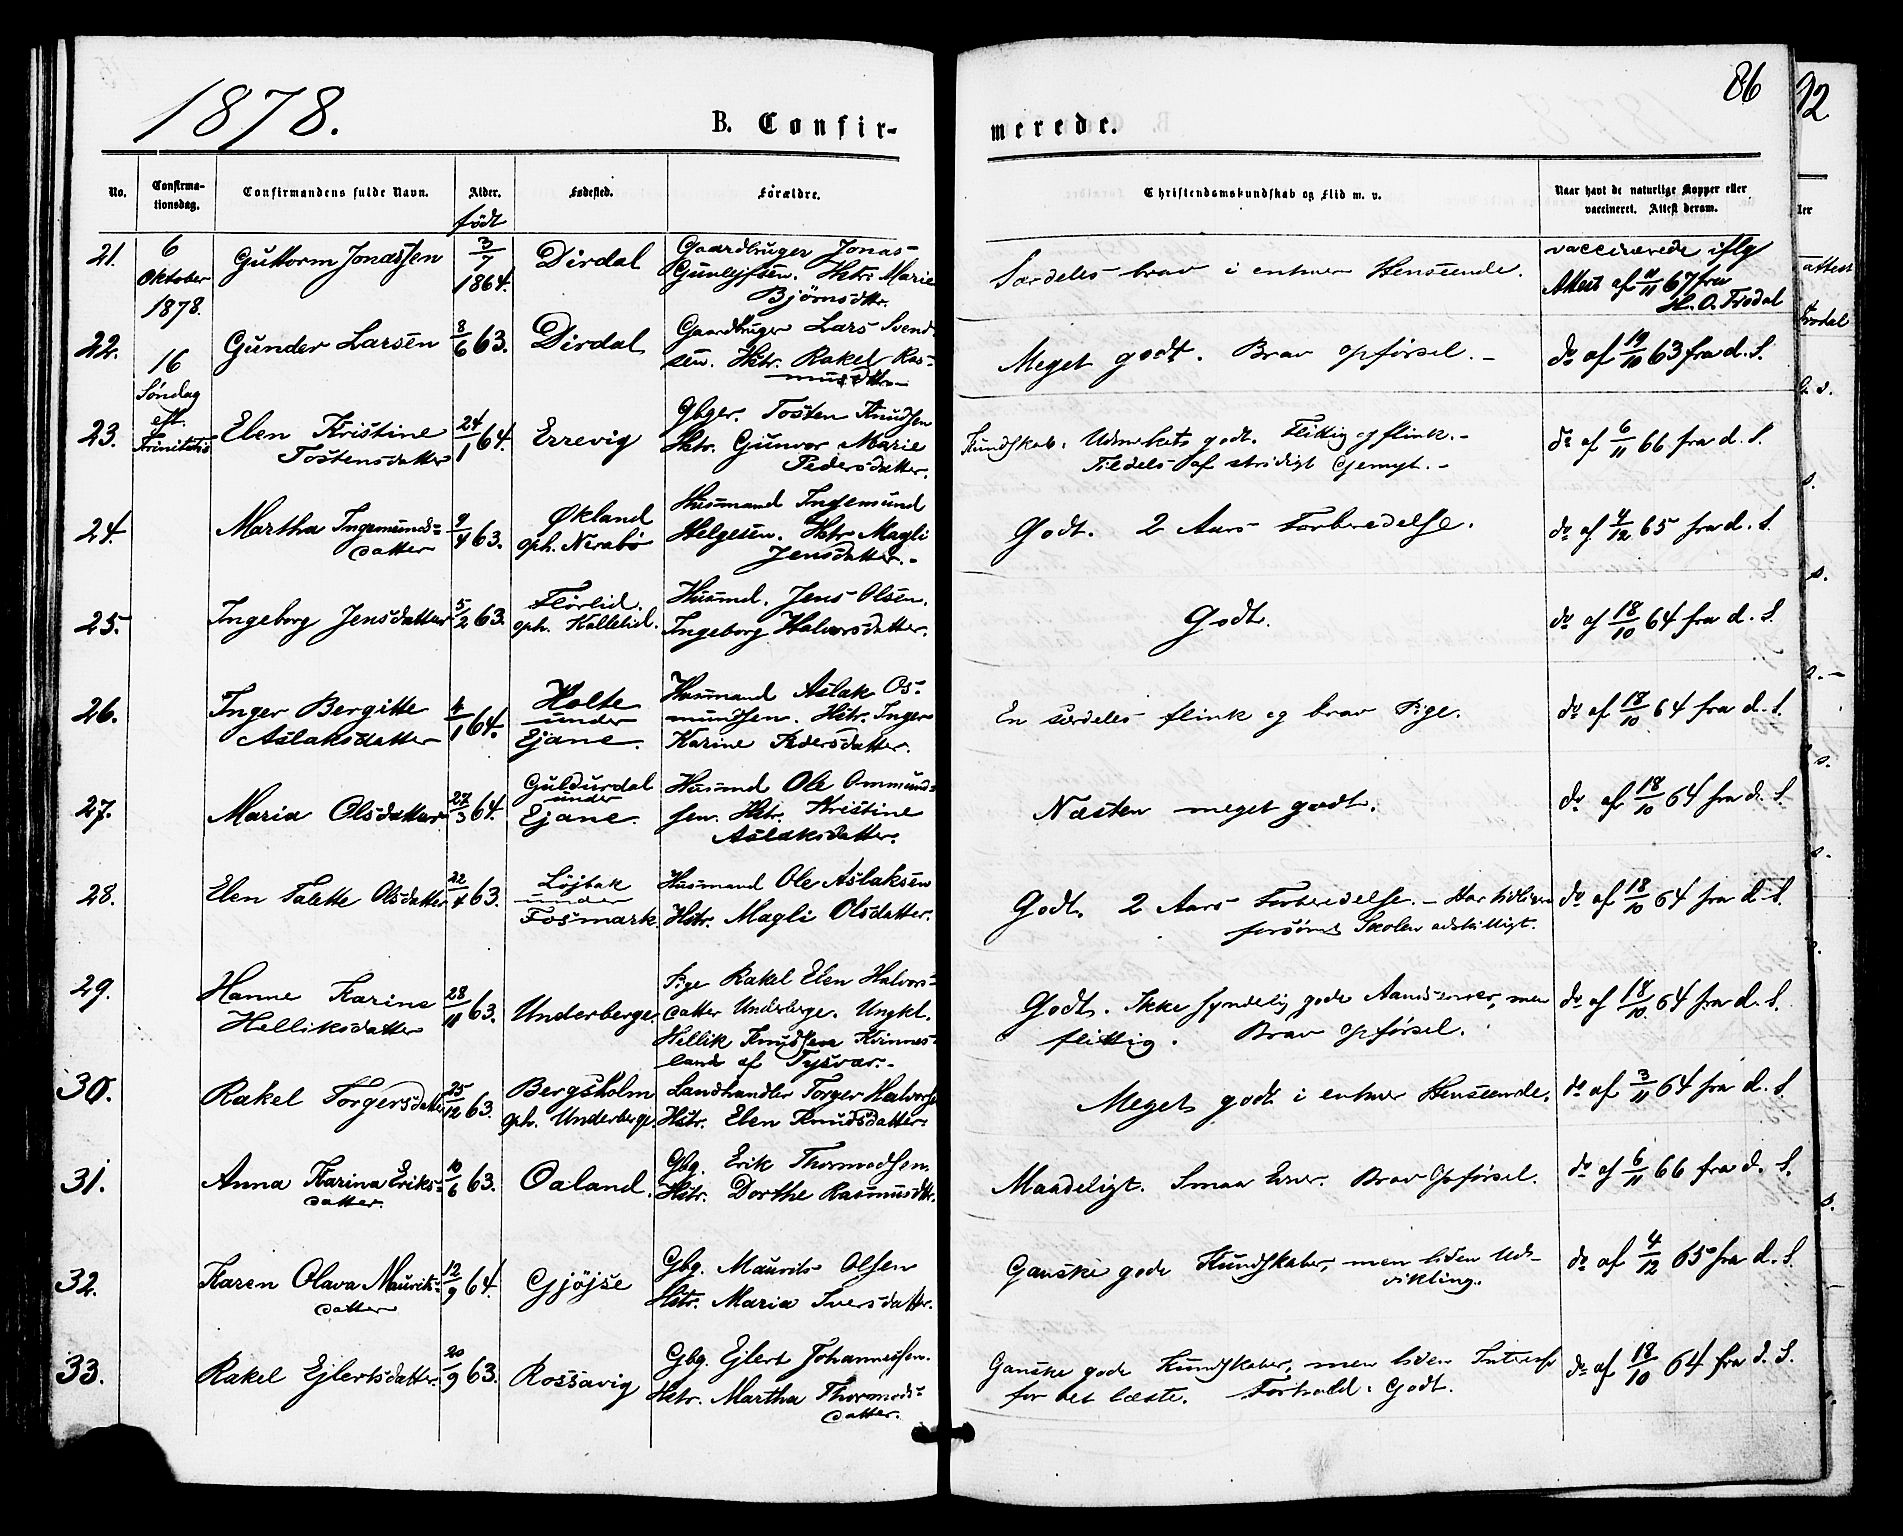 1878.
B. Confir-
merede.
86
No.
Confirma-
tionsdag.
Confirmandens fulde Navn.
Alder.
født
Fødested.
Forældre.
Christendomskundskab og Flid m. v.
Naar havt de naturlige Kopper eller
vaccineret. Attest derom.
6
Oktober
1878.
16
Søndag
eft.
Trinitatis
21.
Guttorm Jonassen
3/7 1864.
Dirdal
Gaardbruger Jonas
Gunlejfsen. Hstr. Marie
Bjørnsdtr.
Særdeles brav i enhver Henseende.
vaccinerede iflg
Attest af 11/11 67 fra
H. O. Frodal
22.
Gunder Larsen
8/6 63.
Dirdal
Gaardbruger Lars Svend-
sen. Hstr. Rakel Ras-
musdtr.
Meget godt. Brav opførsel. -
do af 19/10 63 fra d. S.
23.
Elen Kristine
Tostensdatter
24/1 64.
Errevig
Gbger. Tosten Knudsen
Hstr. Gunvor Marie
Pedersdatter.
Kundskab: Udmerkets godt. Flittig og flink. -
Tildels af stridigt Gemyt. -
do af 6/11 66 fra d. S.
24.
Martha Ingemunds-
datter
9/4 63.
Økland
oph. Nerabø
Husmand Ingemund
Helgesen. Hstr Magli
Jensdatter. -
Godt. 2 Aars Forberedelse.
do af 4/12 65 fra d. S.
25.
Ingeborg Jensdatter
5/2 63.
Flørlid.
oph. Hallelid.
Husmd. Jens Olsen.
Ingeborg Halvorsdatter.
Godt.
do af 18/10 64 fra d. S.
26.
Inger Bergitte
Aslaksdatter
4/1 64.
Holte
under
Ejane.
Husmand Aslak Os-
mundsen. Hstr. Inger
Karine Pedersdatter.
En særdeles flink og brav Pige.
do af 18/10 64 fra d. S.
27.
Maria Olsdatter
27/3 64.
Guldurdal
under
Ejane.
Husmd Ole Ommund-
sen. Hstr. Kristine
Aslaksdatter.
Næsten meget godt.
do af 18/10 64 fra d. S.
28.
Elen Talette Olsdatter
22/4 63.
Løjbak
under
Fosmark
Husmand Ole Aslaksen
Hstr. Magli Olsdatter.
Godt. 2 Aars Forberedelse. - Har tidligere
forsømt Skolen adskilligt.
do af 18/10 64 fra d. S.
29.
Hanne Karine
Helliksdatter
28/11 63.
Underberge.
Pige Rakel Elen Halvors-
datter Underberge. Ungkl.
Hellik Knudsen Kvinnes-
land af Tysvær. -
Godt. Ikke synderlig gode Aandsevner, men
flittig. Brav opførsel.
do af 18/10 64 fra d. S.
30.
Rakel Torgersdatter
25/12 63.
Bergsholm
oph. Underberge.
Landhandler Torger Halvorsen
Hstr. Elen Knudsdatter.
Meget godt i enhver Henseende.
do af 3/11 64 fra d. S.
31.
Anna Karina Eriks-
datter.
10/6 63.
Oaland.
Gbg. Erik Thormodsen.
Hstr. Dorthe Rasmusdtr.
Maadeligt. Smaa Evner. Brav Opførsel.
do af 6/11 66 fra d. S.
32.
Karen Olava Maurits-
datter
12/9 64.
Gjøjse
Gbg. Maurits Olsen
Hstr. Maria Iversdatter.
Ganske gode Kundskaber, men liden Ud-
vikling.
do af 4/12 65 fra d. S.
33.
Rakel Ejlertsdatter.
20/9 63.
Rossavig
Gbg. Ejlert Johannessen.
Hstr. Martha Thormods-
datter.
Ganske gode Kundskaber, men liden Interesse
for det læste. Forhold: Godt.
do af 18/10 64 fra d. S.